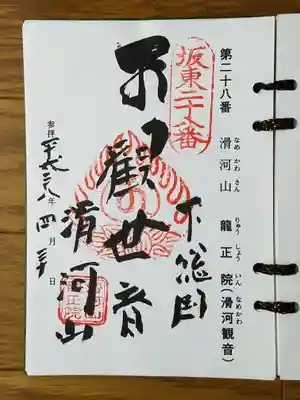 第二十八番　滑河山　龍正院（滑河観音）
なめかわさん　りゅうしょういん　なめかわ
坂東二十八番
下総国
觀世音
滑河山
参拝 平成二八年 四月 日